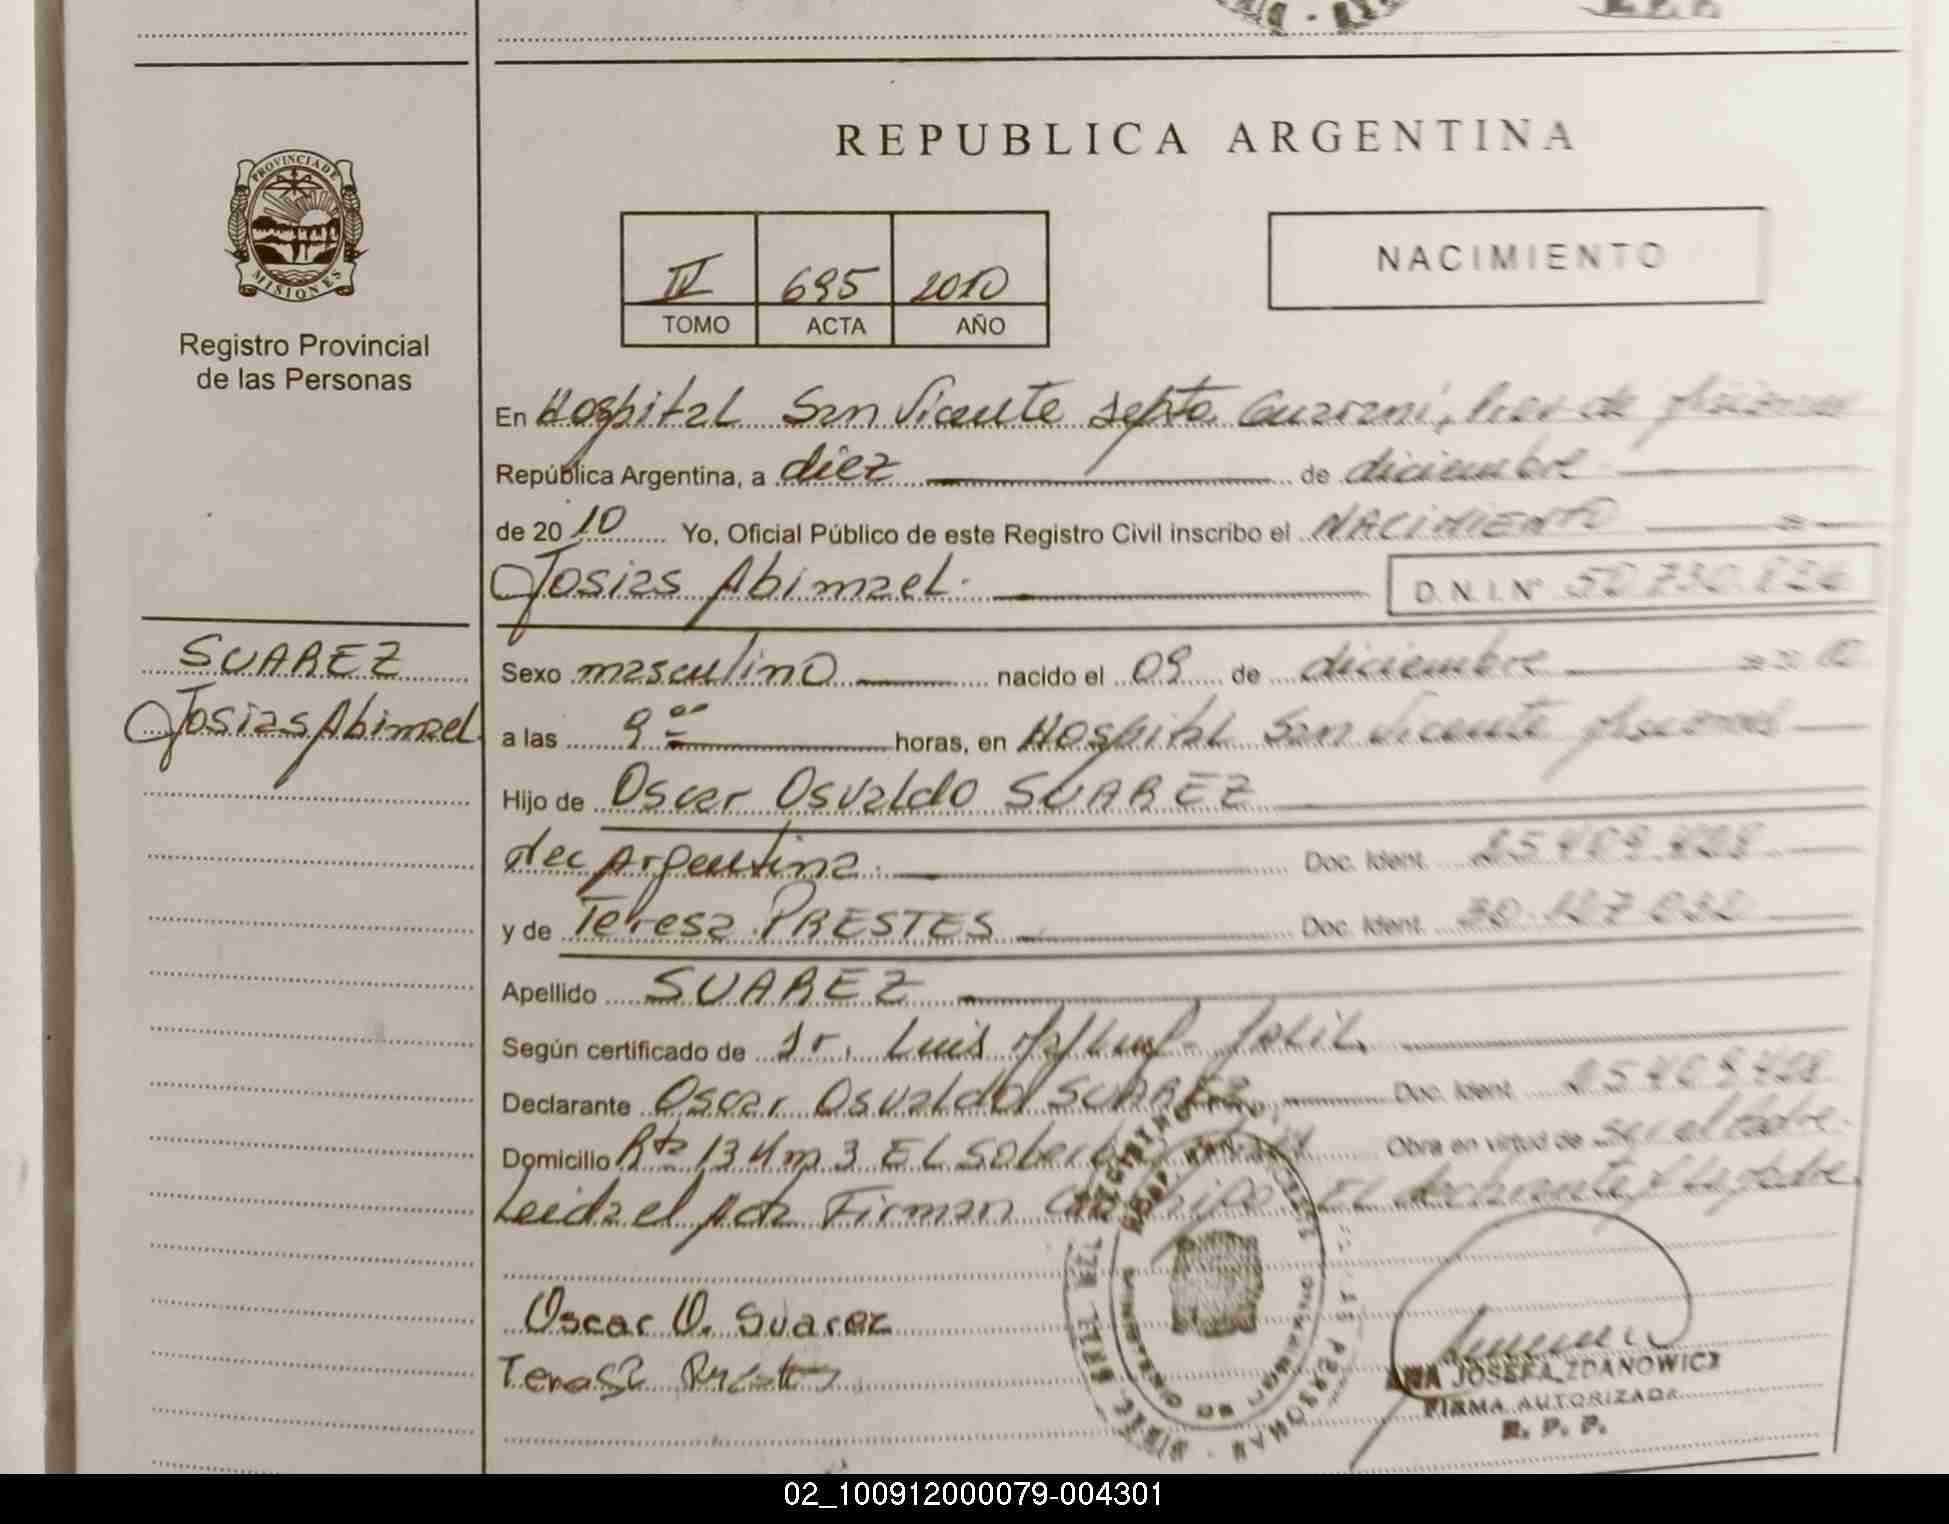 REPUBLICA ARGENTINA
PROVINCIA DE
MISIONES
Registro Provincial
de las Personas
IV 695 2010
TOMO ACTA AÑO
NACIMIENTO
En Hospital San Vicente Depto Guaraní, Pcia de Misiones
República Argentina, a diez de diciembre
de 2010 Yo, Oficial Público de este Registro Civil inscribo el NACIMIENTO de
Josias Abimael. D.N.I. Nº 50.730.
SUAREZ
Josias Abimael
Sexo masculino nacido el 09 de diciembre de 2010
a las 9 00 horas, en Hospital San Vicente Misiones
Hijo de Oscar Osvaldo SUAREZ
Nac Argentina. Doc. Ident. 25.409.408
y de Teresa PRESTES Doc. Ident. 30.127.032
Apellido SUAREZ
Según certificado de Dr. Luis
Declarante Oscar Osvaldo SUAREZ Doc. Ident. 25.409.408
Domicilio Rta 13 Km 3 EL Soberbio Obra en virtud de Ser el Padre.
Leida el Acta Firman EL declarante y la Madre
Oscar O. Suarez
Teresa Prestes
ANA JOSEFA ZDANOWICZ
FIRMA AUTORIZADA
R. P. P.
02_100912000079-004301